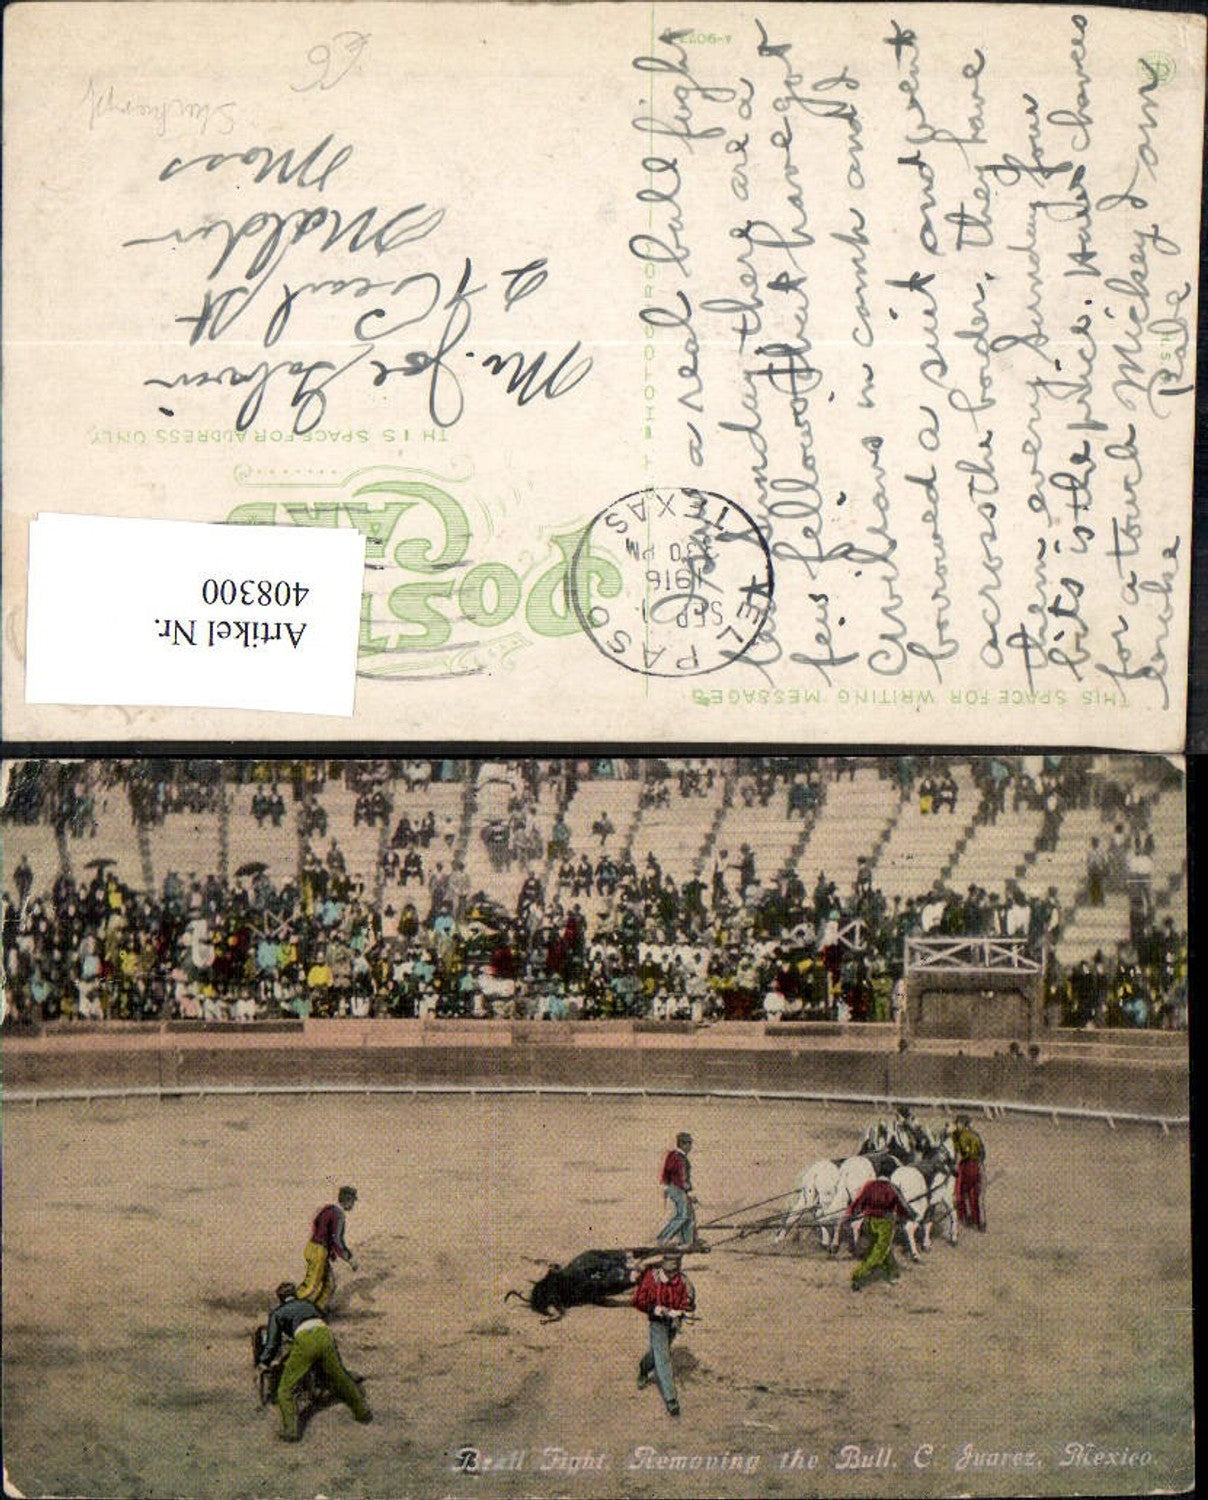 POST CARD
THIS SPACE FOR ADDRESS ONLY.
THIS SPACE FOR WRITING MESSAGES
Mr. Joe Galvin
27 Pearl St
Malden
Mass
EL PASO
SEP 11
1916
TEXAS
Artikel Nr.
408300
a real bull fight
last Sunday there are a
few fellows that have got
Civilians in camp and I
borrowed a suit and went
across the border. they have
them every Sunday four
bits is the price. Hows chances
for a touch Mickey I am
broke
Bull Fight, Removing the Bull, C. Juarez, Mexico.